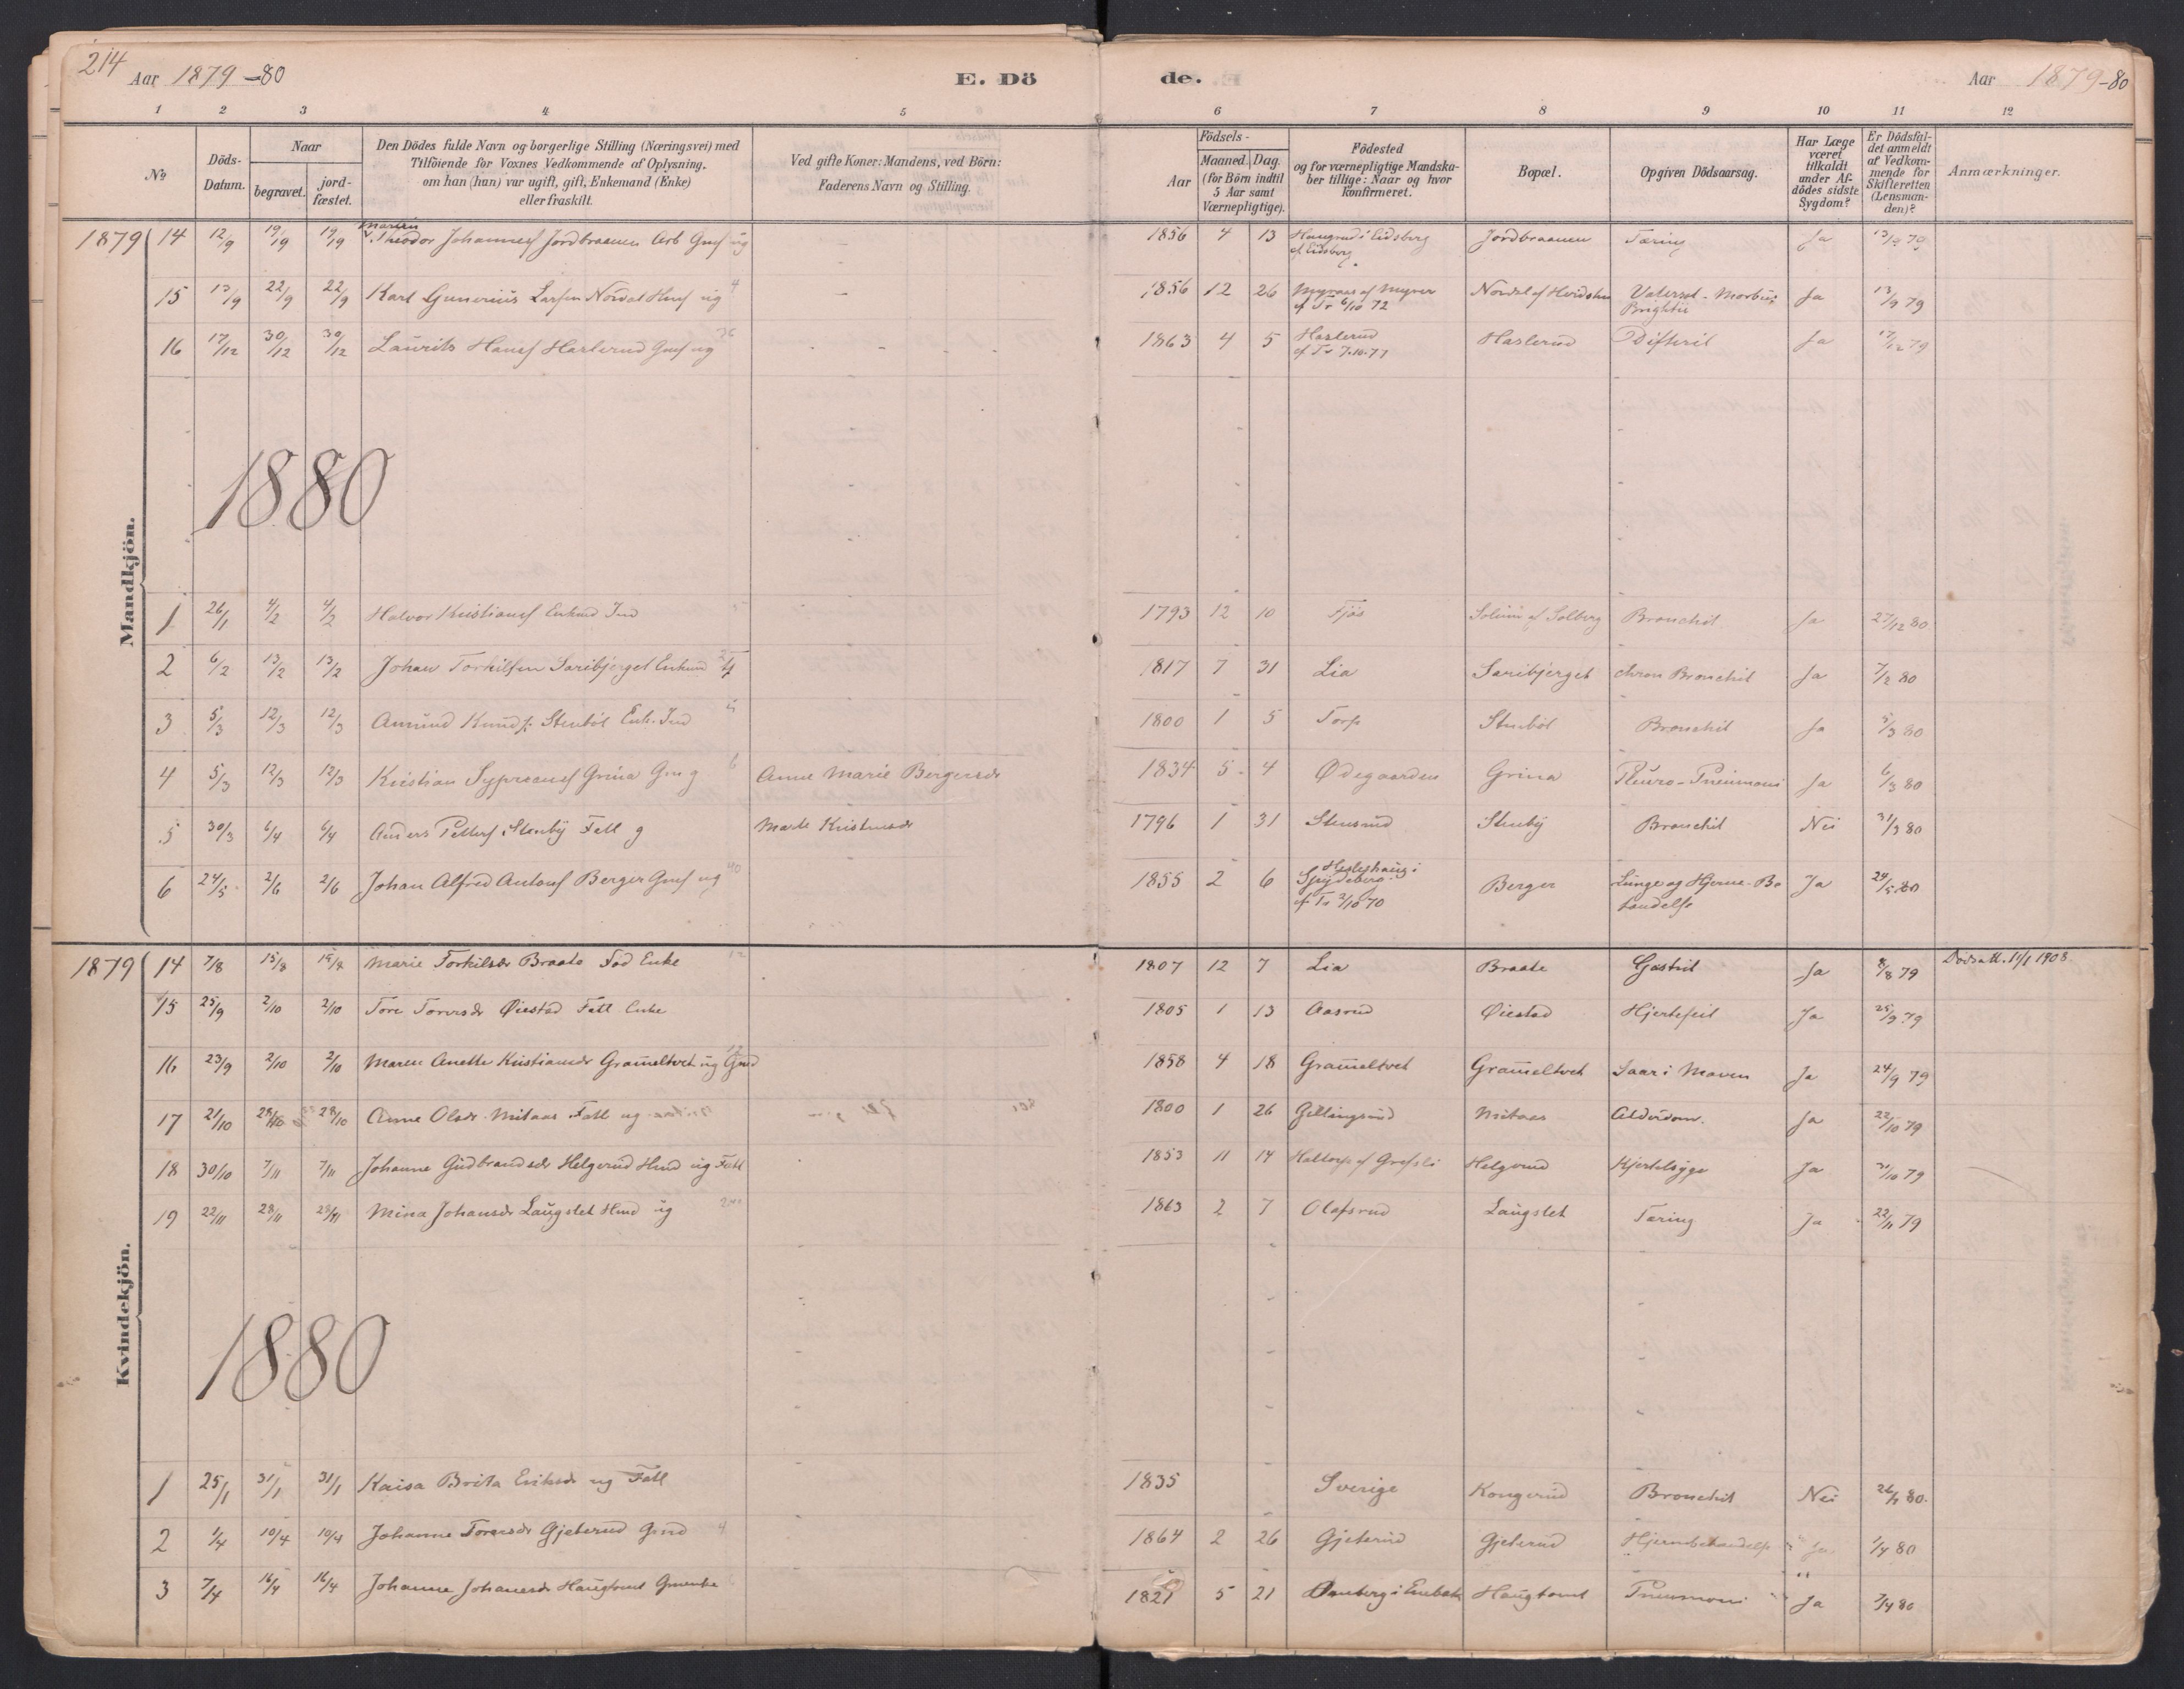 214 Aar 1879-80 E. Dö de. Aar 1879-80
1 2 3 4 5 6 7 8 9 10 11 12
No Döds-Datum. Naar begravet. jord-fæstet. Den Dödes fulde Navn og borgerlige Stilling (Næringsvei) med Tilföiende for Voxnes Vedkommende af Oplysning. om han (hun) var ugift, gift, Enkemand (Enke) eller fraskilt. Ved gifte Koner: Mandens, ved Börn: Faderens Navn og Stilling. Födsels- Aar Maaned. Dag. (for Börn indtil 5 Aar samt Værnepligtige). Födested og for værnepligtige Mandskaber tillige: Naar og hvor konfirmeret. Bopæl. Opgiven Dödsaarsag. Har Læge været tilkaldt under Afdödes sidste Sygdom? Er Dödsfaldet anmeldt af Vedkommende for Skifteretten (Lensmanden)? Anmærkninger.
Mandkjön.
1879 14 12/9 19/9 19/9 Theodor Johannesf Jordbraanen Arb Gmsf ug 1856 4 13 Haugrud i Eidsberg cf Eidsberg Jordbraanen Tæring Ja 13/9 79
15 13/9 22/9 22/9 Karl Gunerius Larsen Nordal Hmsf ug 1856 12 26 Myraas af Myrer cf Tr 6/10 72 Nordal af Morbus Brightii Ja 13/9 79
16 17/12 30/12 30/12 Laurits Hansf Haslerud Gmsf ug 1863 4 5 Haslerud cf Tr 7.10.77 Haslerud Difterit Ja 17/12 79
1880
1 26/1 4/2 4/2 Halvor Kristiansf Enkmd Ind 1793 12 10 Fjös Solum af Solberg Bronchit Ja 27/12 80
2 6/2 13/2 13/2 Johan Torkilsen Saribjerget Enkmd 1817 7 31 Lia Saribjerget chron Bronchit Ja 7/2 80
3 5/3 12/3 12/3 Amund Knudsf. Stenböl Enk. Ind 1800 1 5 Torp Stenböl Bronchit Ja 5/3 80
4 5/3 12/3 12/3 Kristian Sypriansf Grina Gm g Anne Marie Bergersdr 1834 5 4 Ødegaarden Grina Pleuro-Pneumoni Ja 6/3 80
5 30/3 6/4 6/4 Anders Pettersf Stenby Fatt g Marte Kristensdr 1796 1 31 Stensrud Stenby Bronchit Nei 31/3 80
6 24/5 2/6 2/6 Johan Alfred Antonsf Berger Gmsf ug 1855 2 6 Spydeberg cf Tr 2/10 70 Berger Lunge og Hjerne-Betændelse Ja 24/5 80
Kvindekjön.
1879 14 7/8 15/8 15/8 Marie Torkilsdr Braate Fød Enke 1807 12 7 Lia Braate Gastrit Ja 8/8 79 Dødsatt. 11/1 1908
15 25/9 2/10 2/10 Tore Toresdr Øiestad Fatt Enke 1805 1 13 Aasrud Øiestad Hjertefeil Ja 25/9 79
16 23/9 2/10 2/10 Maren Anette Kristiansdr Grameltvet ug Gmd 1858 4 18 Grameltvet Grameltvet Saar i Maven Ja 24/9 79
17 21/10 28/10 28/10 Anne Olsdr Mitaas Fatt ug 1800 1 26 Gillingsrud Mitaas Alderdom. Ja 22/10 79
18 30/10 7/11 7/11 Johanne Gudbrandsdr Helgerud Hmd ug Fatt 1853 11 14 Haltorp af Grefsli Helgerud Hjertesyge Ja 31/10 79
19 22/11 28/11 28/11 Mina Johansdr Laugslet Hmd ug 1863 2 7 Olafsrud Laugslet Tæring Ja 22/11 79
1880
1 25/1 31/1 31/1 Kaisa Brita Eriksdr ug Fatt 1835 Sverige Kongerud Bronchit Nei 26/1 80
2 1/4 10/4 10/4 Johanne Toresdr Gjeterud Gmd 1864 2 26 Gjeterud Gjeterud Hjernebetændelse Ja 1/4 80
3 7/4 16/4 16/4 Johanne Johanesdr Haugtomt Gmenke 1821 5 21 Haugtomt Pneumoni Ja 7/4 80